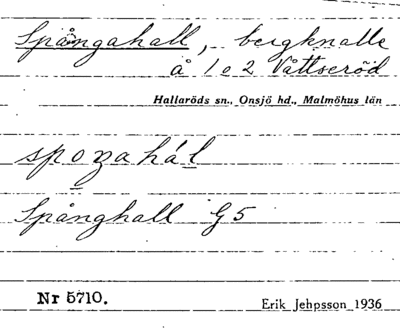 Spångahall, bergknalle
å 1 o 2 Våttseröd
Hallaröds sn., Onsjö hd., Malmöhus län
spoŋahál
Spånghall G5
Nr 5710.
Erik Jehpsson 1936